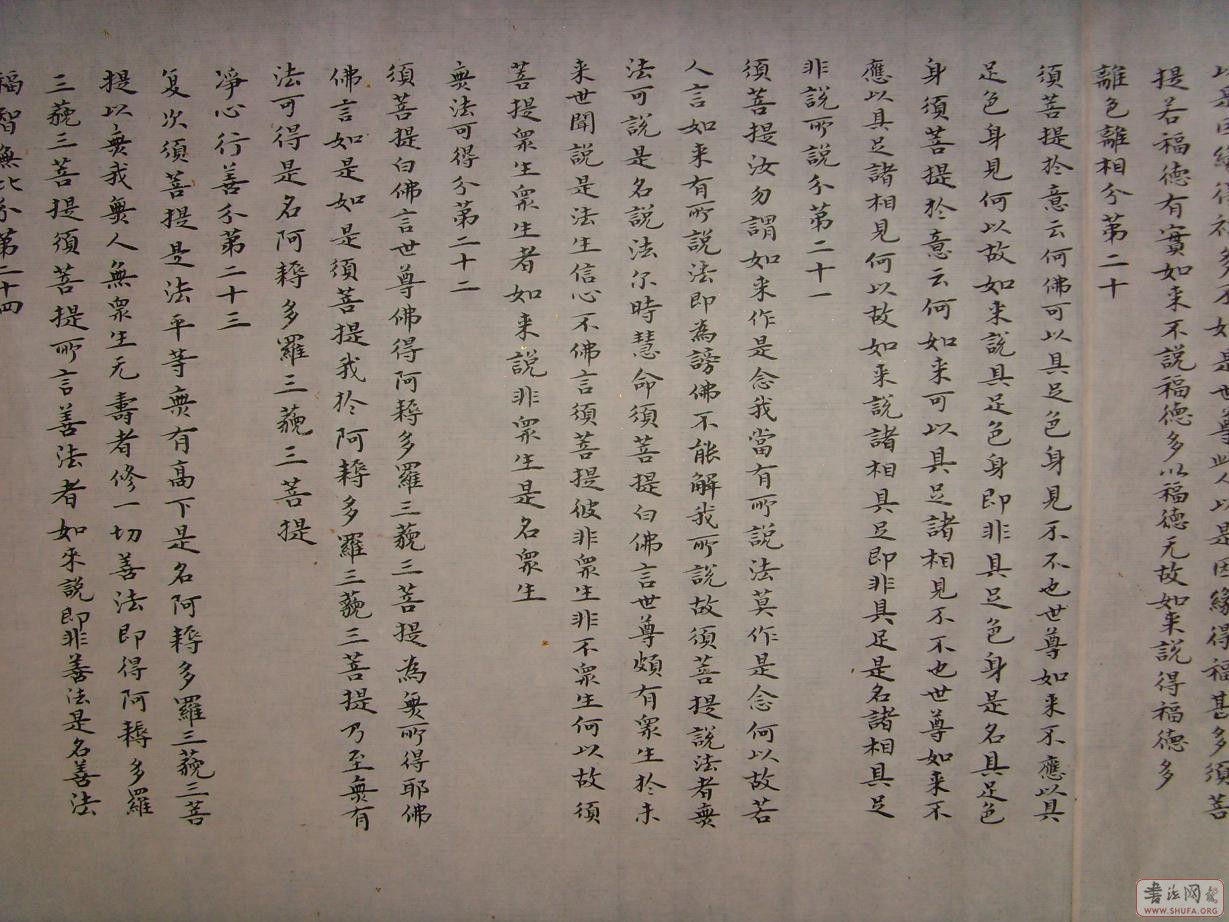 以是因緣得福多不如是世尊此人以是因緣得福甚多須菩
提若福德有實如来不説福德多以福德无故如来説得福德多
離色離相分第二十
須菩提於意云何佛可以具足色身見不不也世尊如来不應以具
足色身見何以故如来説具足色身即非具足色身是名具足色
身須菩提於意云何如来可以具足諸相見不不也世尊如来不
應以具足諸相見何以故如来説諸相具足即非具足是名諸相具足
非説所説分第二十一
須菩提汝勿謂如来作是念我當有所説法莫作是念何以故若
人言如来有所説法即為謗佛不能解我所説故須菩提説法者無
法可説是名説法尔時慧命須菩提白佛言世尊頗有衆生於未
来世聞説是法生信心不佛言須菩提彼非衆生非不衆生何以故須
菩提衆生衆生者如来説非衆生是名衆生
無法可得分第二十二
須菩提白佛言世尊佛得阿耨多羅三藐三菩提為無所得耶佛
佛言如是如是須菩提我於阿耨多羅三藐三菩提乃至無有
法可得是名阿耨多羅三藐三菩提
淨心行善分第二十三
复次須菩提是法平等無有高下是名阿耨多羅三藐三菩
提以無我無人無衆生无壽者修一切善法即得阿耨多羅
三藐三菩提須菩提所言善法者如来説即非善法是名善法
福智無比分第二十四
書法网
WWW.SHUFA.ORG